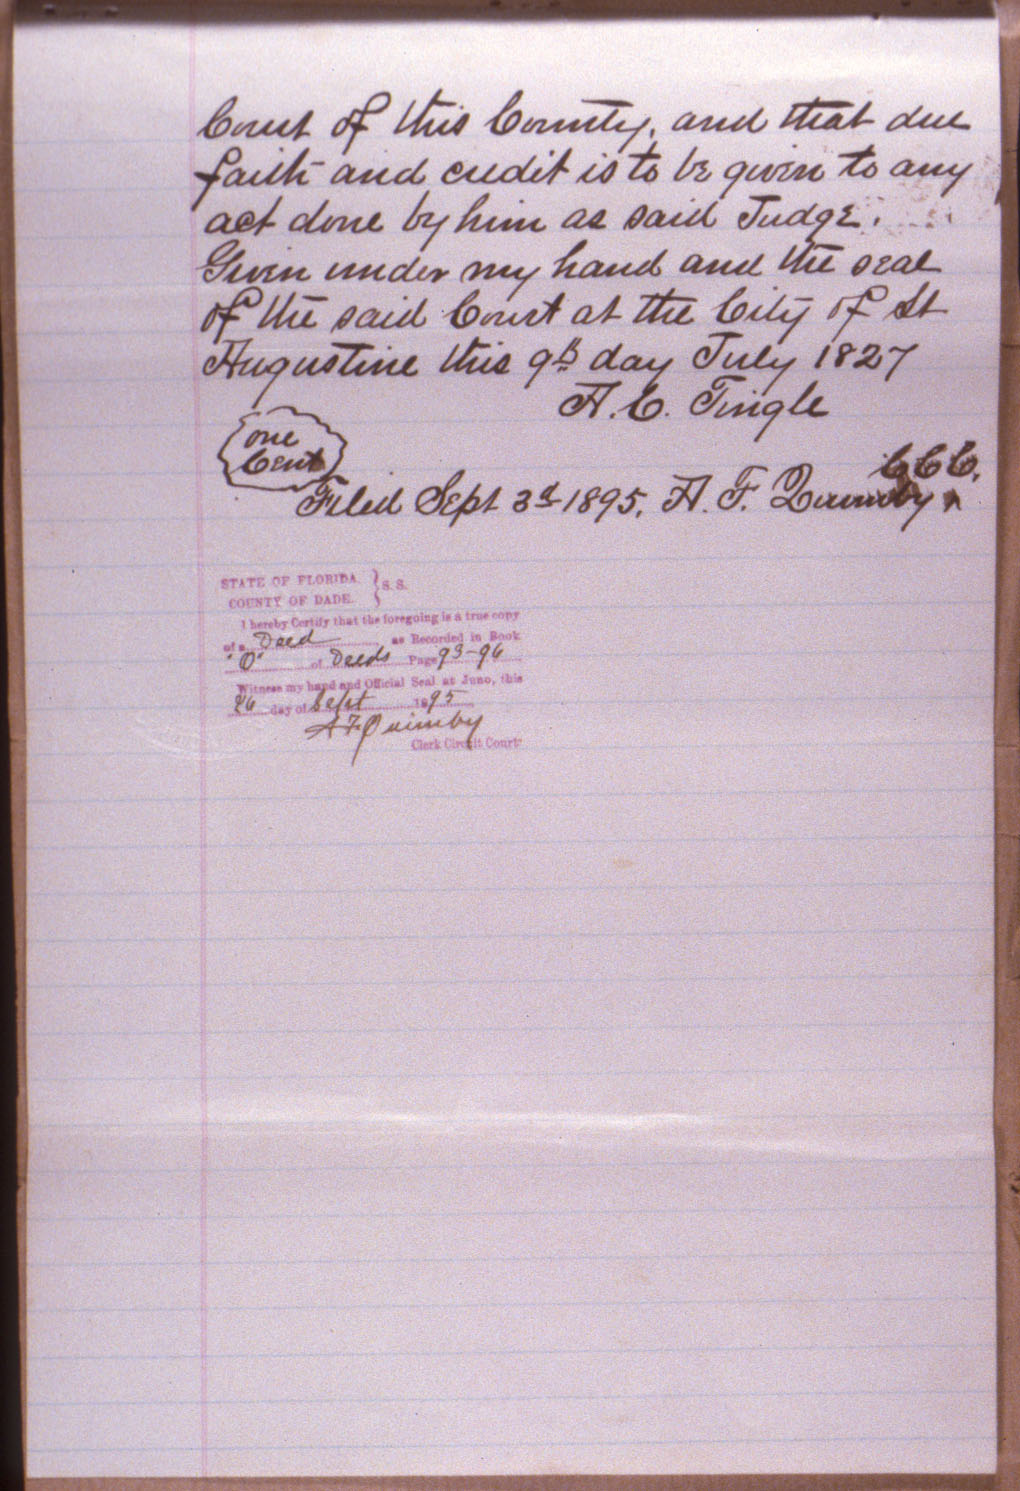 Court of this County, and that due
faith and credit is to be given to any
act done by him as said Judge.
Given under my hand and the seal
of the said Court at the City of St
Augustine this 9th day July 1827
A. E. Tingle
one
Cent
Filed Sept 3d 1895, A. F. Quimby ^ C C C.
STATE OF FLORIDA } S. S.
COUNTY OF DADE.
I hereby Certify that the foregoing is a true copy
of a Deed as Recorded in Book
"O" of Deeds Page 93-96
Witness my hand and Official Seal at Juno, this
26 day of Sept 1895
A F Quimby
Clerk Circuit Court